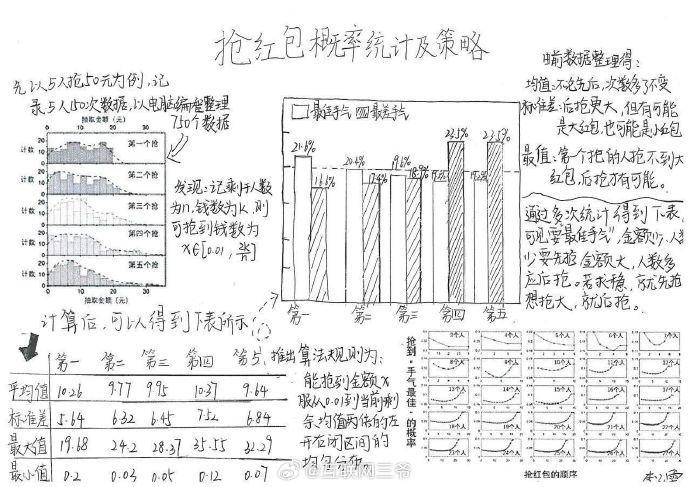 抢红包概率统计及策略
先以5人抢50元为例,记
录5人150次数据,以电脑编程整理
750个数据
抽取金额(元)
0 10 20 30
计数
第一个抢
计数
第二个抢
计数
第三个抢
计数
第四个抢
计数
第五个抢
0 10 20 30
抽取金额(元)
发现:记剩于人数
为n,钱数为k,则
可抢到钱数为
计算后,可以得到下表所示
第一 第二 第三 第四 第五
平均值 10.26 9.77 9.95 10.37 9.64
标准差 5.64 6.32 6.45 7.52 6.84
最大值 19.68 24.2 28.37 35.55 32.29
最小值 0.2 0.03 0.05 0.12 0.07
最佳手气 最差手气
21.6% 16.6% 17.4% 22.5% 23.5%
第一 第二 第三 第四 第五
推出算法规则为:
能抢到金额X
服从0.01到当前剩
余均值两倍的左
开右闭区间的
均匀分布。
由前数据整理得:
均值:不论先后,次数多了不变
标准差:后抢更大,但有可能
是大红包,也可能是小红包
最值:第一个抢的人抢不到大
红包,后抢才有可能。
通过多次统计得到下表,
可见要"最佳手气",金额少、人
少要先抢,金额大,人数多
应后抢。若求稳,就先抢
想抢大,就后抢。
抢到"手气最佳"的概率
抢红包的顺序
@互联网三爷